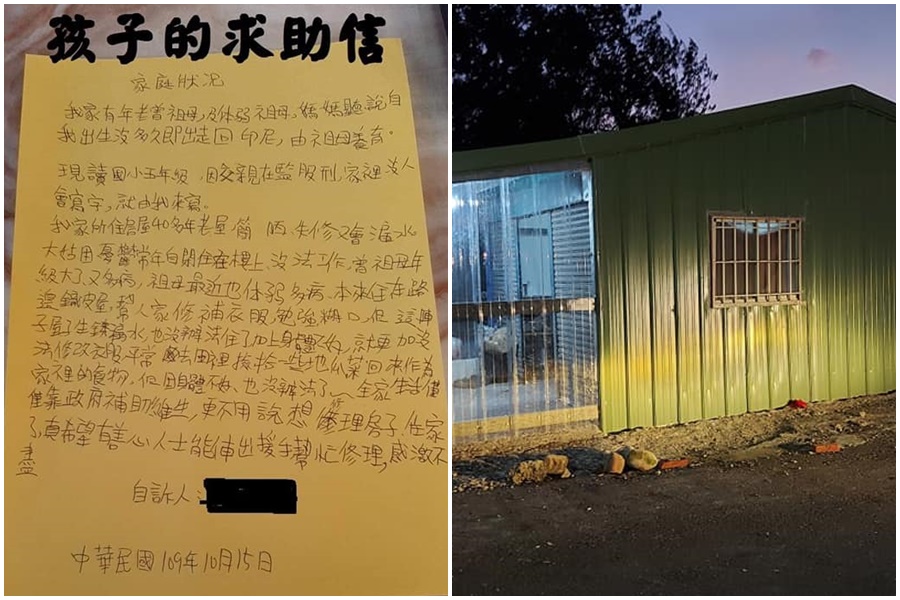 孩子的求助信
家庭狀況
我家有年老曾祖母,及体弱祖母,媽媽聽說自
我出生沒多久即出走回印尼,由祖母養育。
現讀國小五年級,因父親在監服刑,家裡沒人
會寫字,就由我來寫。
我家所住房屋40多年老屋簡陋,失修又會漏水
大姑因憂鬱常年自閉住在樓上,沒法工作,曾祖母年
級大了又多病,祖母最近也体弱多病,本來住在路
邊鐵皮屋,幫人家修補衣服,勉強糊口,但這陣
子屋子生銹漏水,也沒辦法住了加上身體不好,就更加沒
法修改衣服平常都去田裡撿拾一些地瓜菜回來作為
家裡的食物,但因身體不好,也沒辦法了,全家生活僅
僅靠政府補助維生,更不用說想修理房子住家
了,真希望有善心人士能伸出援手幫忙修理,感激不
盡
自訴人:
中華民國109年10月15日